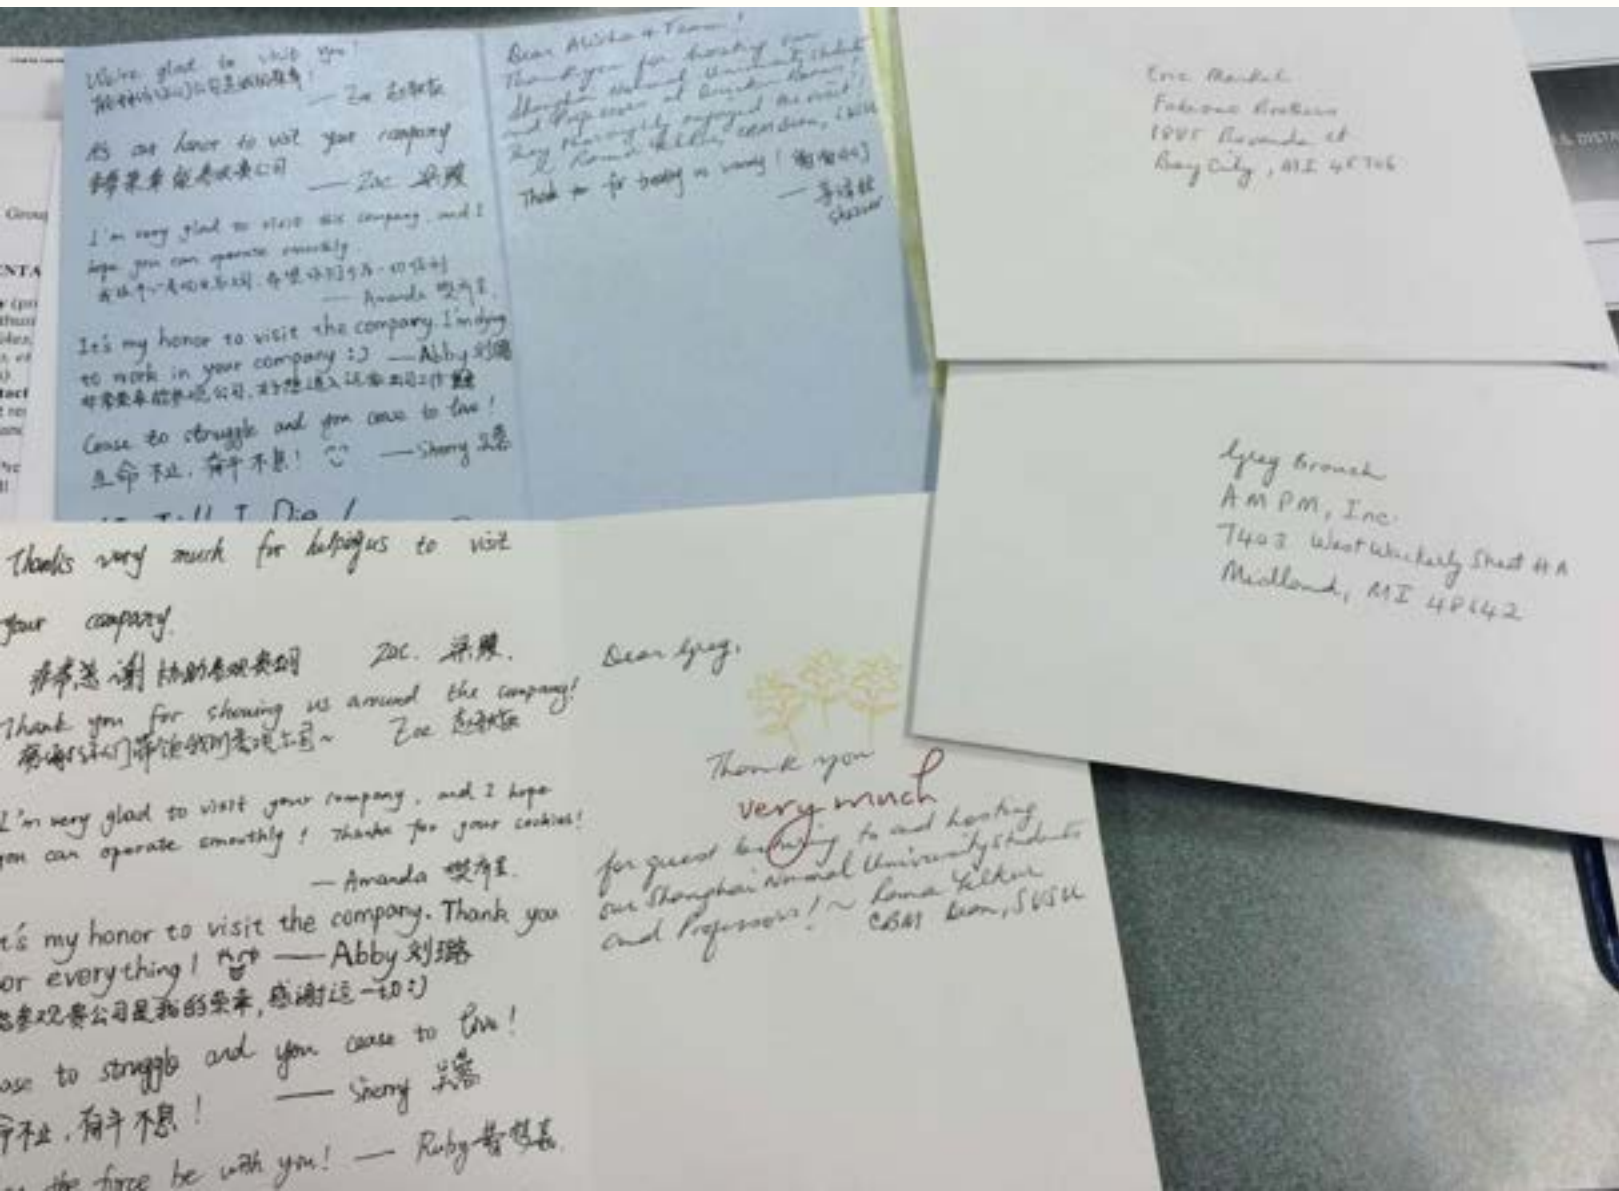 We're glad to visit you!
— Zoe 赵
It's our honor to visit your company
非常荣幸能参观贵公司
— Zac 梁
I'm very glad to visit this company, and I
hope you can operate smoothly
— Amanda 樊
It's my honor to visit the company. I'm dying
to work in your company :) — Abby 刘璐
非常荣幸能参观公司,
Cease to struggle and you cease to live!
生命不止,奋斗不息! — Sherry 吴
Till I Die!
Dear Alisha & Team!
Thank you for hosting our
Shanghai Normal University students
and Professor at
They thoroughly enjoyed the visit!
Rama Yelkur, CBM Dean, SVSU
Thank you for treating us warmly! 谢谢
Eric
Brothers
1885 Ct
Bay City, MI 48706
Greg Branch
AMPM, Inc.
7403 West Wackerly Street #A
Midland, MI 48642
Thanks very much for helping us to visit
your company.
非常感谢协助参观贵公司 Zac. 梁
Thank you for showing us around the company!
感谢你们带领我们参观公司~ Zoe 赵
I'm very glad to visit your company, and I hope
you can operate smoothly! Thanks for your cookies!
— Amanda 樊
It's my honor to visit the company. Thank you
or everything! — Abby 刘璐
参观贵公司是我的荣幸,感谢这一切:)
ase to struggle and you cease to live!
— Sherry 吴
命不止,奋斗不息!
the force be with you! — Ruby
Dear Greg,
Thank you
very much
for guest to and hosting
our Shanghai Normal University students
and Professors! ~ Rama Yelkur
CBM Dean, SVSU